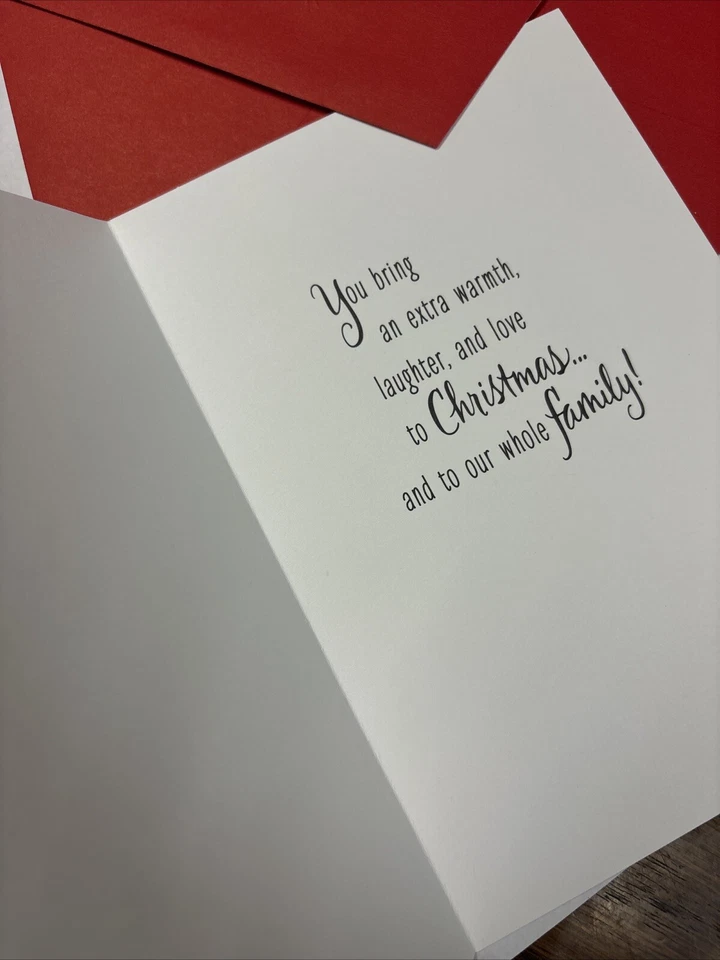 You bring
an extra warmth,
laughter, and love
to Christmas...
and to our whole family!